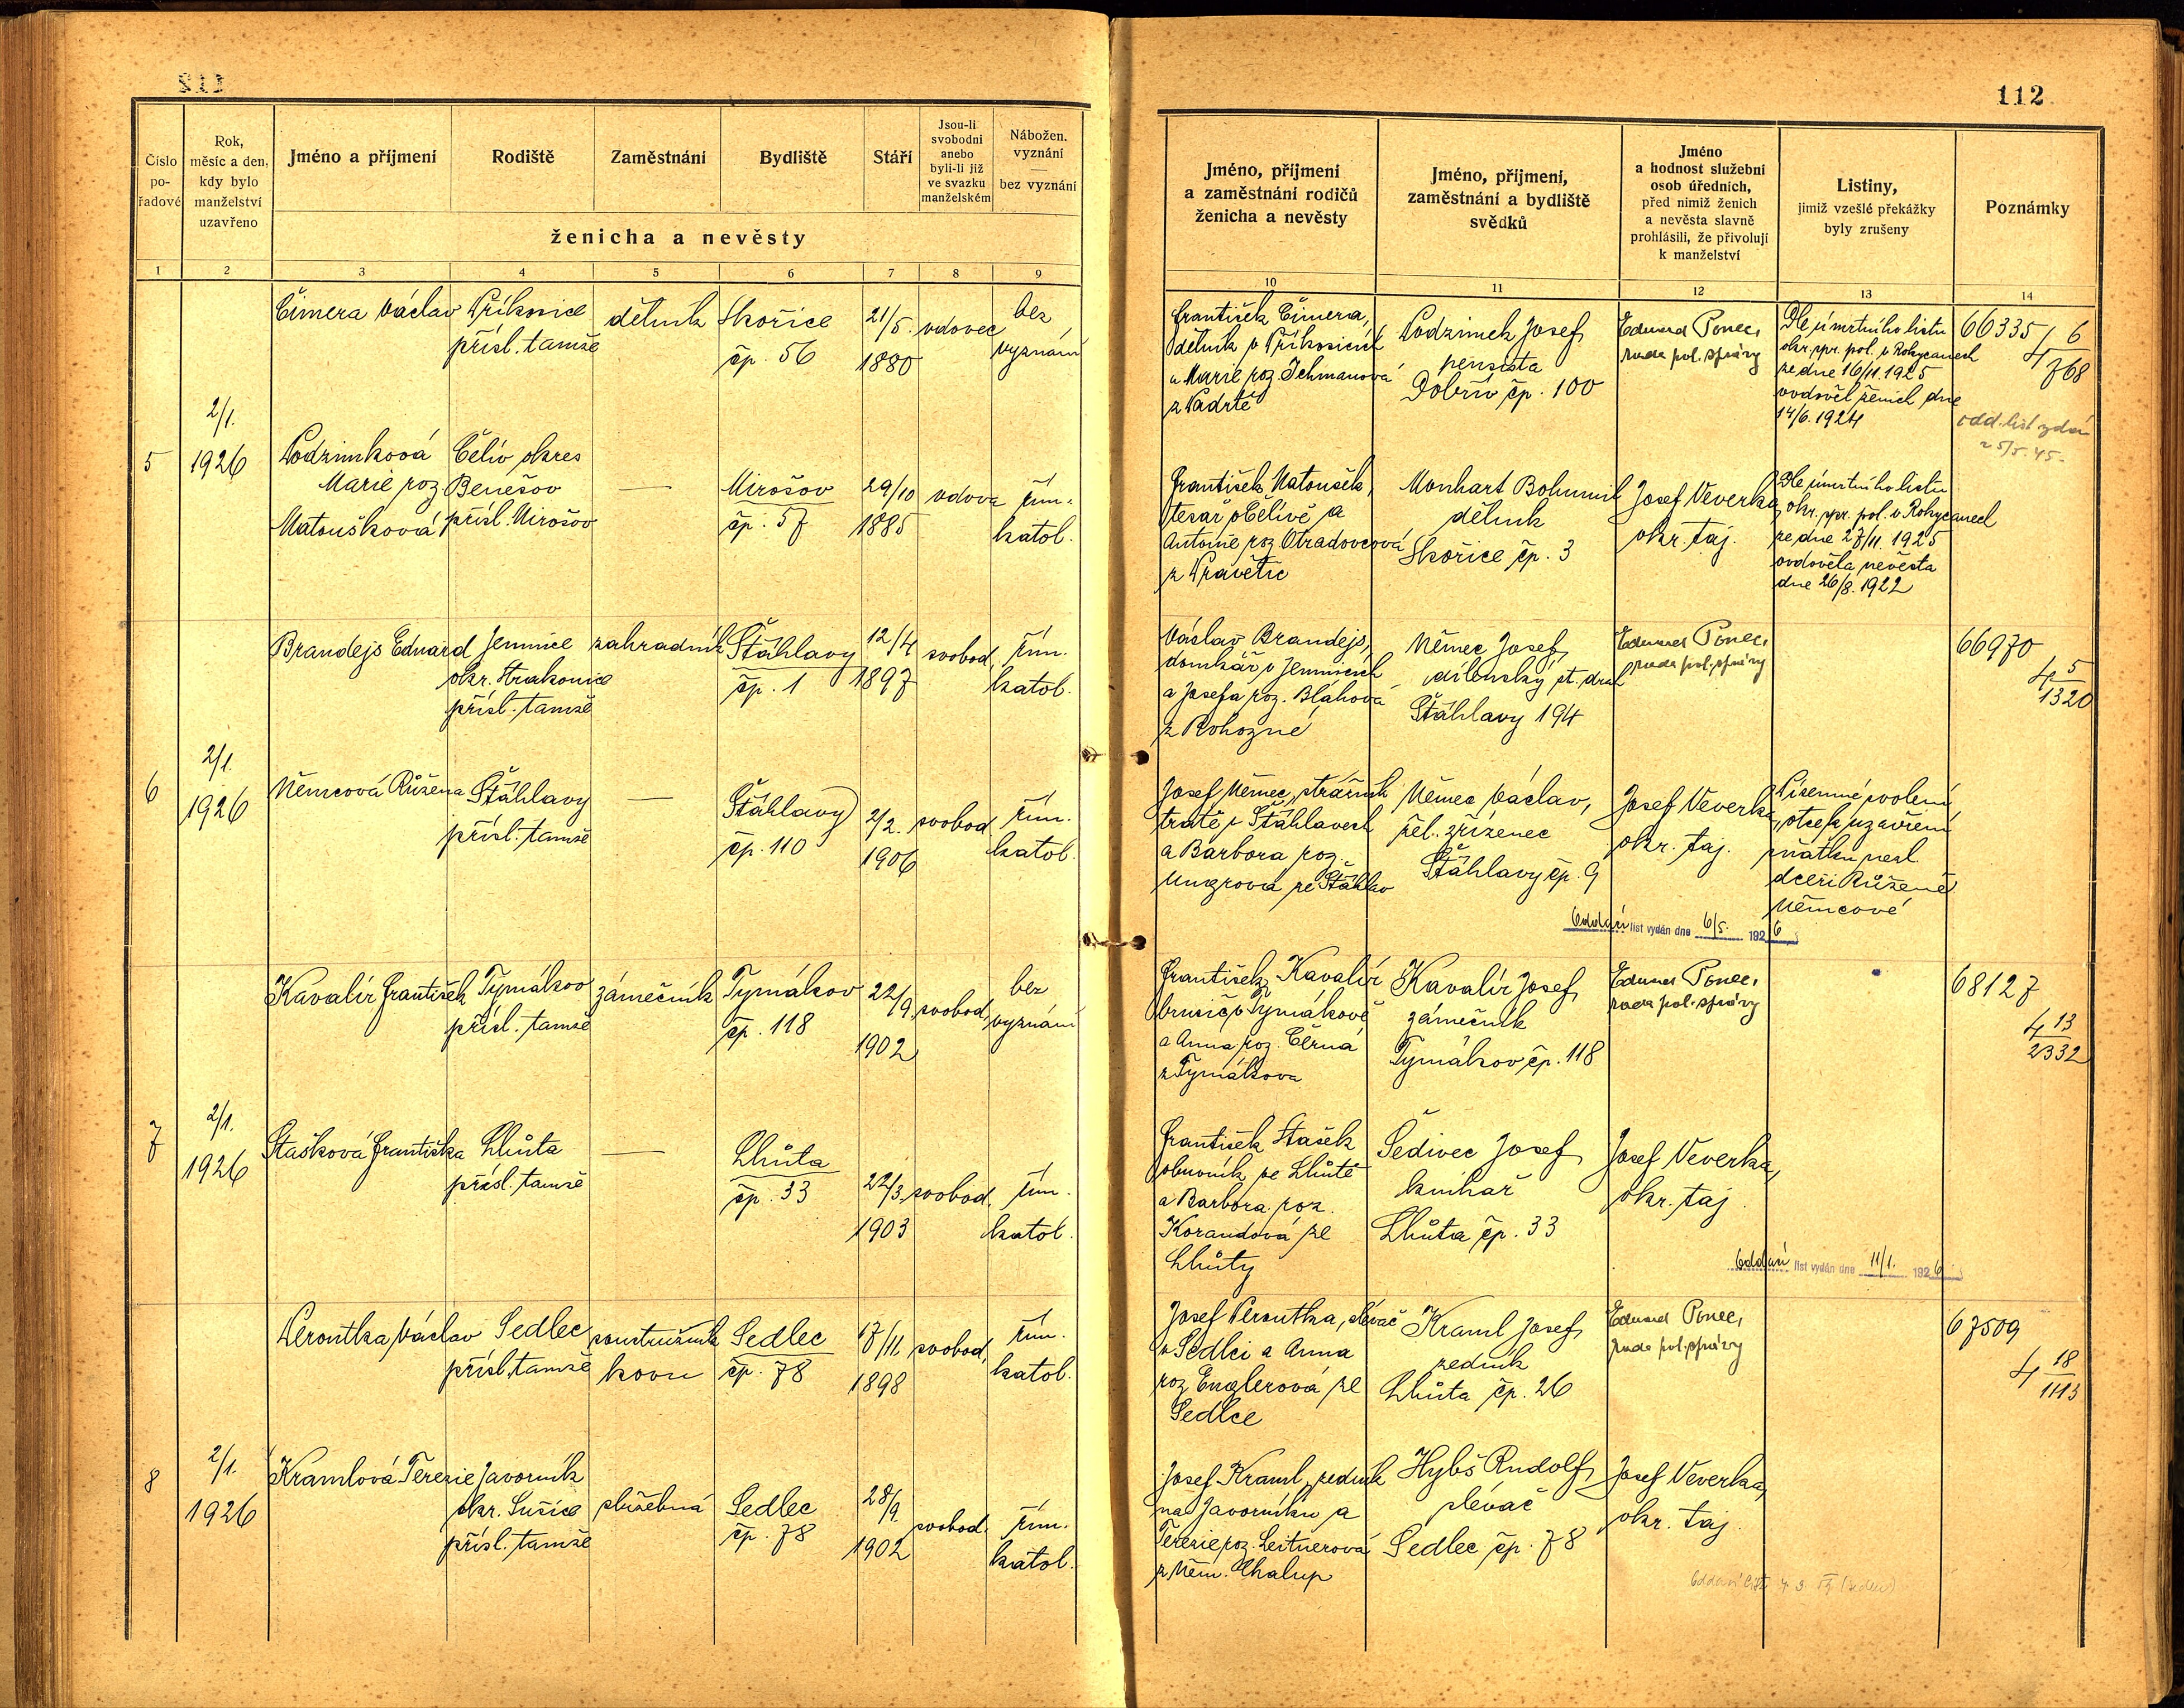 112
Číslo po-řadové
Rok, měsíc a den, kdy bylo manželství uzavřeno
Jméno a příjmení
Rodiště
Zaměstnání
Bydliště
Stáří
Jsou-li svobodni anebo byli-li již ve svazku manželském
Nábožen. vyznání — bez vyznání
ženicha a nevěsty
1 2 3 4 5 6 7 8 9
5
2/1.
1926
Čimera Václav
Příkosice
přísl. tamže
dělník
Skořice
čp. 56
21/5.
1880
vdovec
bez
vyznání
Podzimková
Marie roz.
Matoušková
Čeliv okres
Benešov
přísl. Mirošov
—
Mirošov
čp. 57
29/10
1885
vdova
řím.
katol.
6
2/1.
1926
Brandejs Eduard
Jemnice
okr. Strakonice
přísl. tamže
zahradník
Šťáhlavy
čp. 1
12/4
1897
svobod.
řím.
katol.
Němcová Růžena
Šťáhlavy
přísl. tamže
—
Šťáhlavy
čp. 110
2/2.
1906
svobod.
řím.
katol.
7
2/1.
1926
Kavalír František
Tymákov
přísl. tamže
zámečník
Tymákov
čp. 118
22/9.
1902
svobod.
bez
vyznání
Stašková Františka
Lhůta
přísl. tamže
—
Lhůta
čp. 33
22/3.
1903
svobod.
řím.
katol.
8
2/1.
1926
Peroutka Václav
Sedlec
přísl. tamže
soustružník
kovu
Sedlec
čp. 78
17/11.
1898
svobod.
řím.
katol.
Kramlová Terezie
Javorník
okr. Sušice
přísl. tamže
služebná
Sedlec
čp. 78
28/9.
1902
svobod.
řím.
katol.
112
Jméno, příjmení a zaměstnání rodičů ženicha a nevěsty
Jméno, příjmení, zaměstnání a bydliště svědků
Jméno a hodnost služební osob úředních, před nimiž ženich a nevěsta slavně prohlásili, že přivolují k manželství
Listiny, jimiž vzešlé překážky byly zrušeny
Poznámky
10 11 12 13 14
František Čimera,
dělník v Příkosicích
a Marie roz. Jchmanová
z Padrtě
Podzimek Josef
pensista
Dobřív čp. 100
Eduard Ponec,
rada pol. správy
Dle úmrtního listu
okr. spr. pol. v Rokycanech
ze dne 16/11. 1925
ovdověl ženich dne
14/6. 1924
66335
4 6/768
odd. list vydán
25/5. 45.
František Matoušek,
tesař v Čelivě a
Antonie roz. Otradovcová
z Pravětic
Monhart Bohumil
dělník
Skořice čp. 3
Josef Veverka,
okr. taj.
Dle úmrtního listu
okr. spr. pol. v Rokycanech
ze dne 27/11. 1925
ovdověla nevěsta
dne 26/8. 1922
Václav Brandejs,
domkář v Jemnicích
a Josefa roz. Bláhová
z Rohozné
Němec Josef
dílenský st. drah
Šťáhlavy 194
Eduard Ponec,
rada pol. správy
66970
4 5/1320
Josef Němec, strážník
tratě v Šťáhlavech
a Barbora roz.
Ungrová ze Šťáhlav
Němec Václav,
žel. zřízenec
Šťáhlavy čp. 9
Josef Veverka,
okr. taj.
Písemné svolení
otce k uzavření
sňatku nezl.
dceři Růženě
Němcové
Oddací list vydán dne 6/5. 1926
František Kavalír
brusič v Tymákově
a Anna roz. Černá
z Tymákova
Kavalír Josef
zámečník
Tymákov čp. 118
Eduard Ponec,
rada pol. správy
68127
4 13/2332
František Stašek
obuvník ze Lhůtě
a Barbora roz.
Korandová ze
Lhůty
Šedivec Josef
knihař
Lhůta čp. 33
Josef Veverka,
okr. taj.
Oddací list vydán dne 11/1. 1926
Josef Peroutka, slévač
v Sedlci a Anna
roz. Englerová ze
Sedlce
Kraml Josef
zedník
Lhůta čp. 26
Eduard Ponec,
rada pol. správy
67509
4 18/1113
Josef Kraml, zedník
na Javorníku a
Terezie roz. Leitnerová
z Něm. Chalup
Hybš Rudolf
slévač
Sedlec čp. 78
Josef Veverka,
okr. taj.